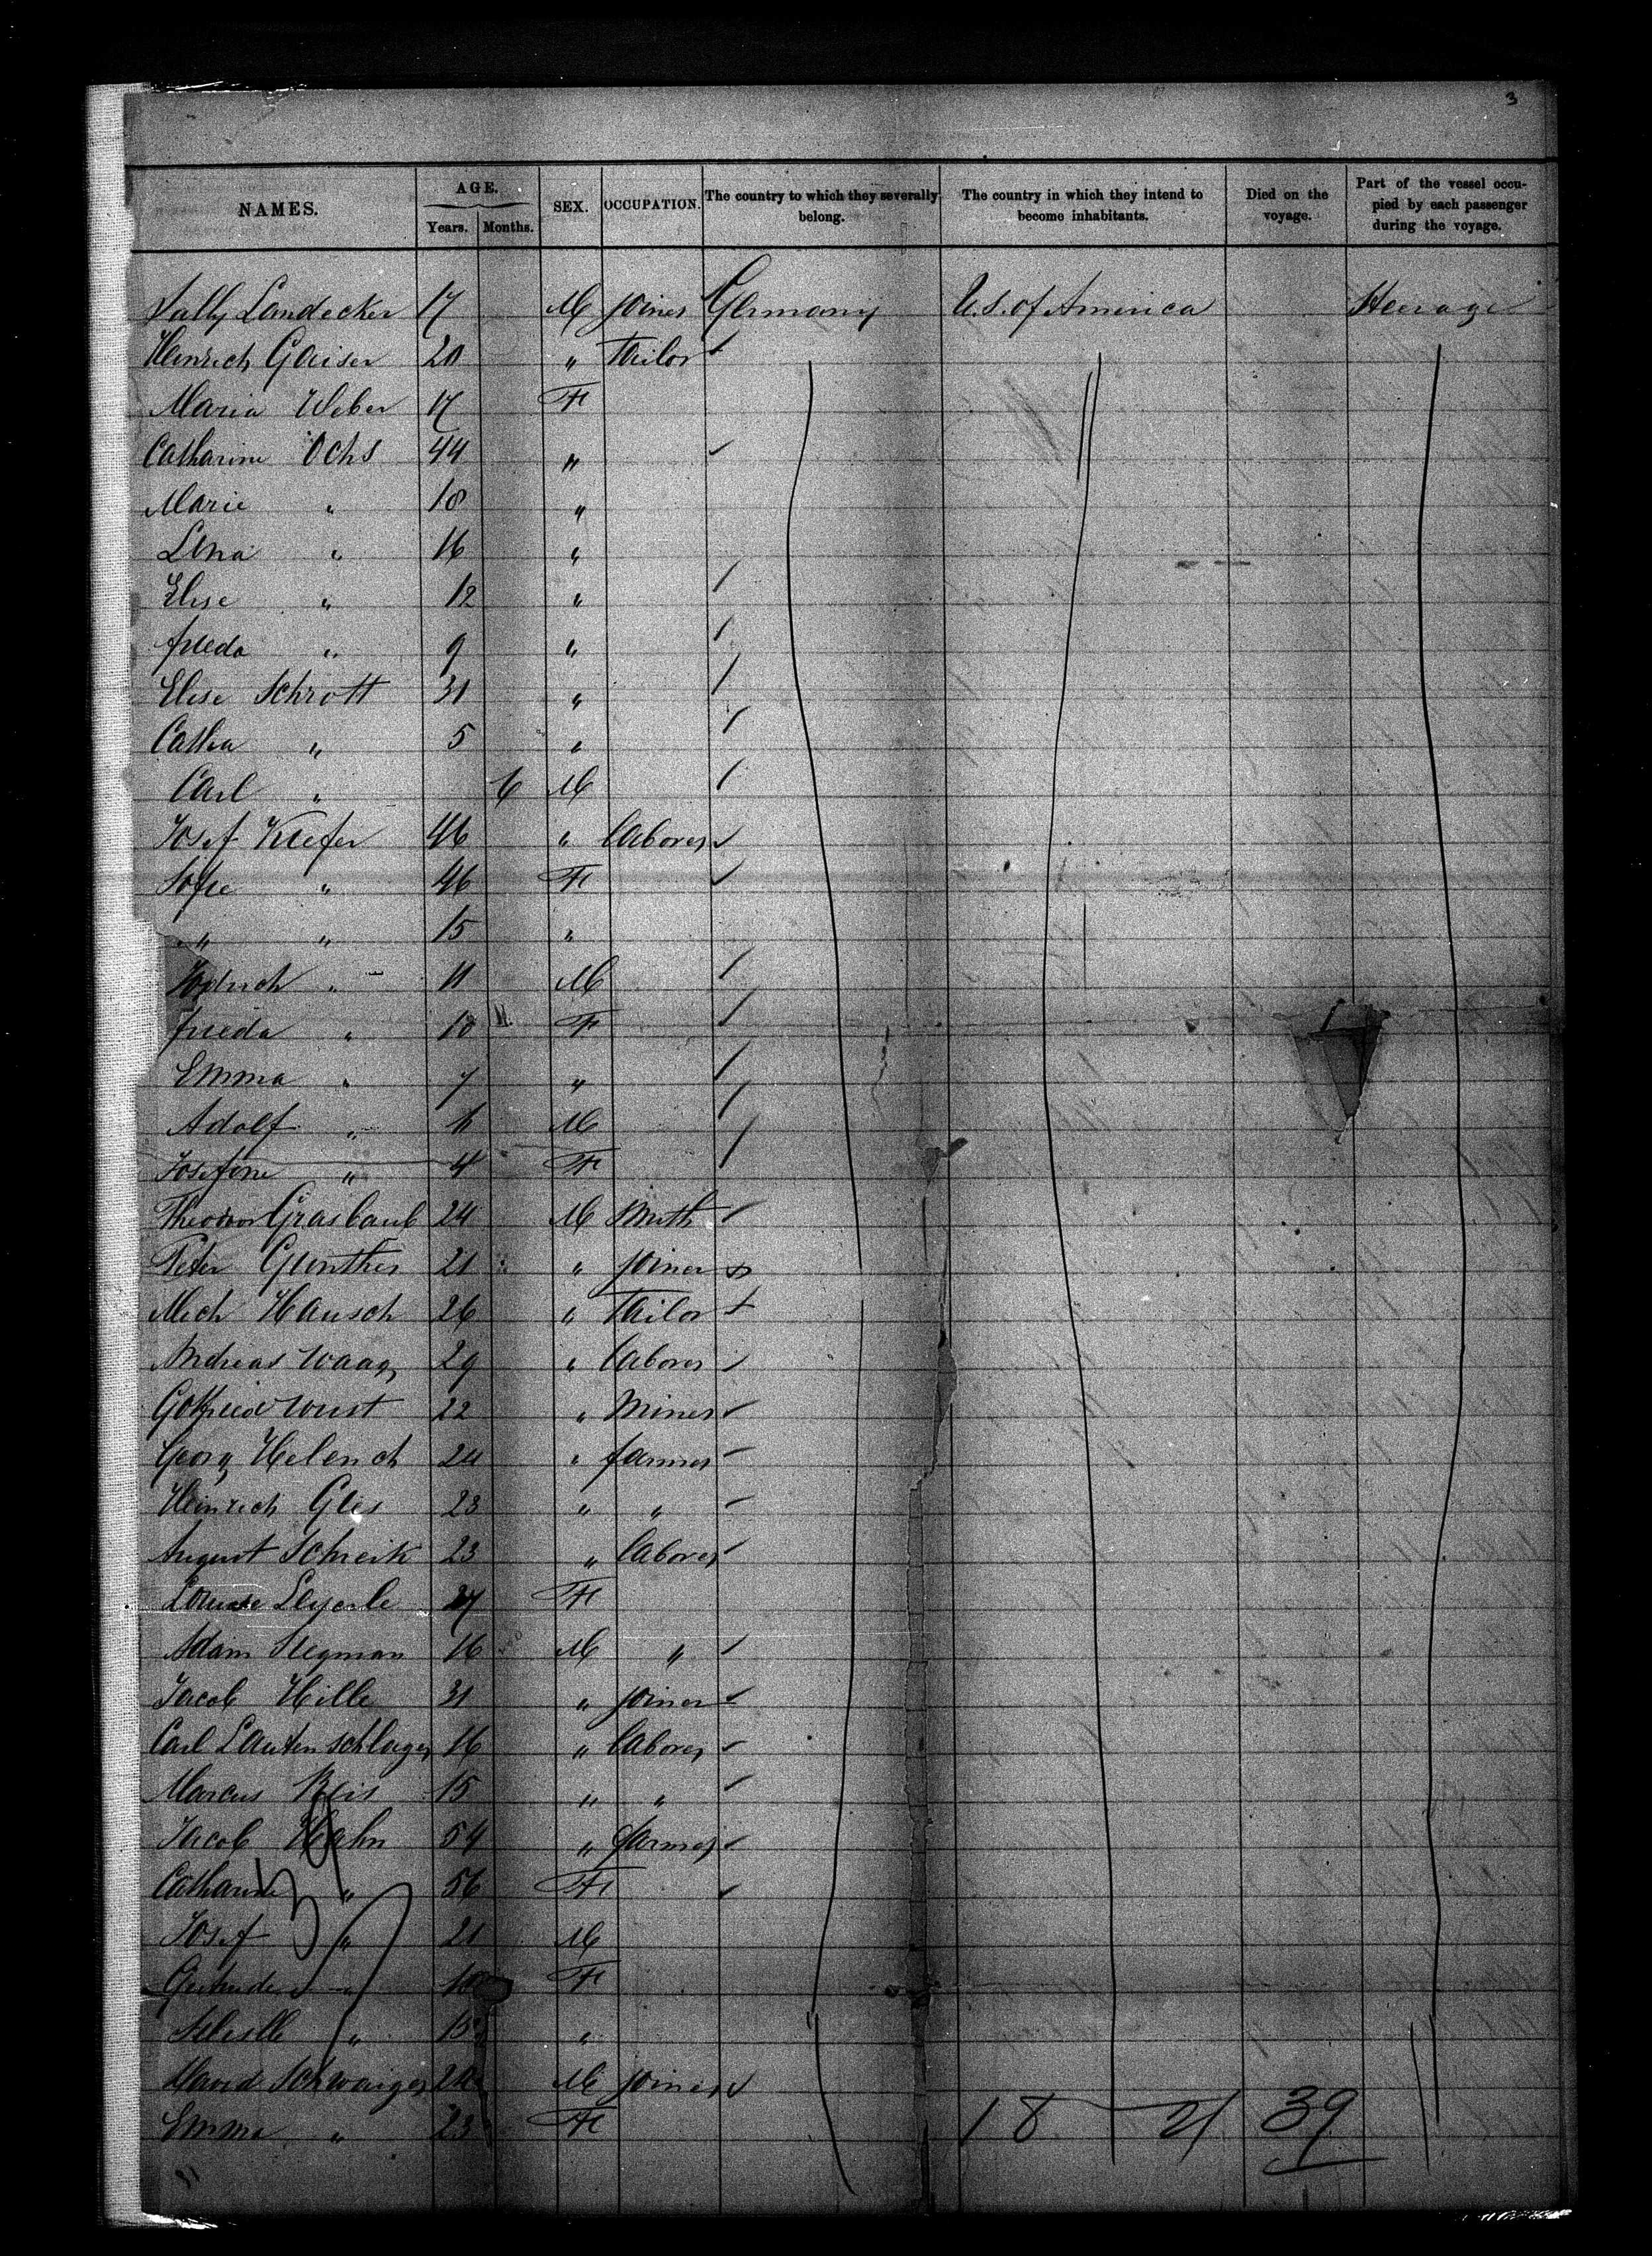 3
NAMES. AGE. Years. Months. SEX. OCCUPATION. The country to which they severally belong. The country in which they intend to become inhabitants. Died on the voyage. Part of the vessel occupied by each passenger during the voyage.
Sally Landecker 17 M joiner Germany U.S. of America Steerage
Heinrich Gaiser 20 " Tailor
Maria Weber 17 F
Catharine Ochs 44 "
Marie " 18 "
Lena " 16 "
Elise " 12 "
frieda " 9 "
Elise Schrott 31 "
Catha " 5 "
Carl " 6 M
Josef Kiefer 46 " laborer
Sofie " 46 F
" " 15 "
" 11 M
frieda " 10 F
Emma " 7 "
Adolf " M
Josefine " 4 F
Theodor Graslaub 24 M Smith
Peter Gunther 21 " joiner
Mich Hausch 26 " Tailor
Andreas Waag 29 " laborer
Gottfried Wust 22 " Miner
Georg 24 " farmer
Heinrich Gles 23 " "
August Schreik 23 " laborer
Louise Leyerle 27 F
Adam Stegman 16 M "
Jacob Hille 31 " joiner
Carl Lautenschlager 16 " laborer
Marcus Reis 15 " "
Jacob Hahn 54 " farmer
Catharine " 56 F
Josef " 21 M
Gertrude " F
" 15 "
David Schwaiger M joiner
Emma " 23 F
18 21 39